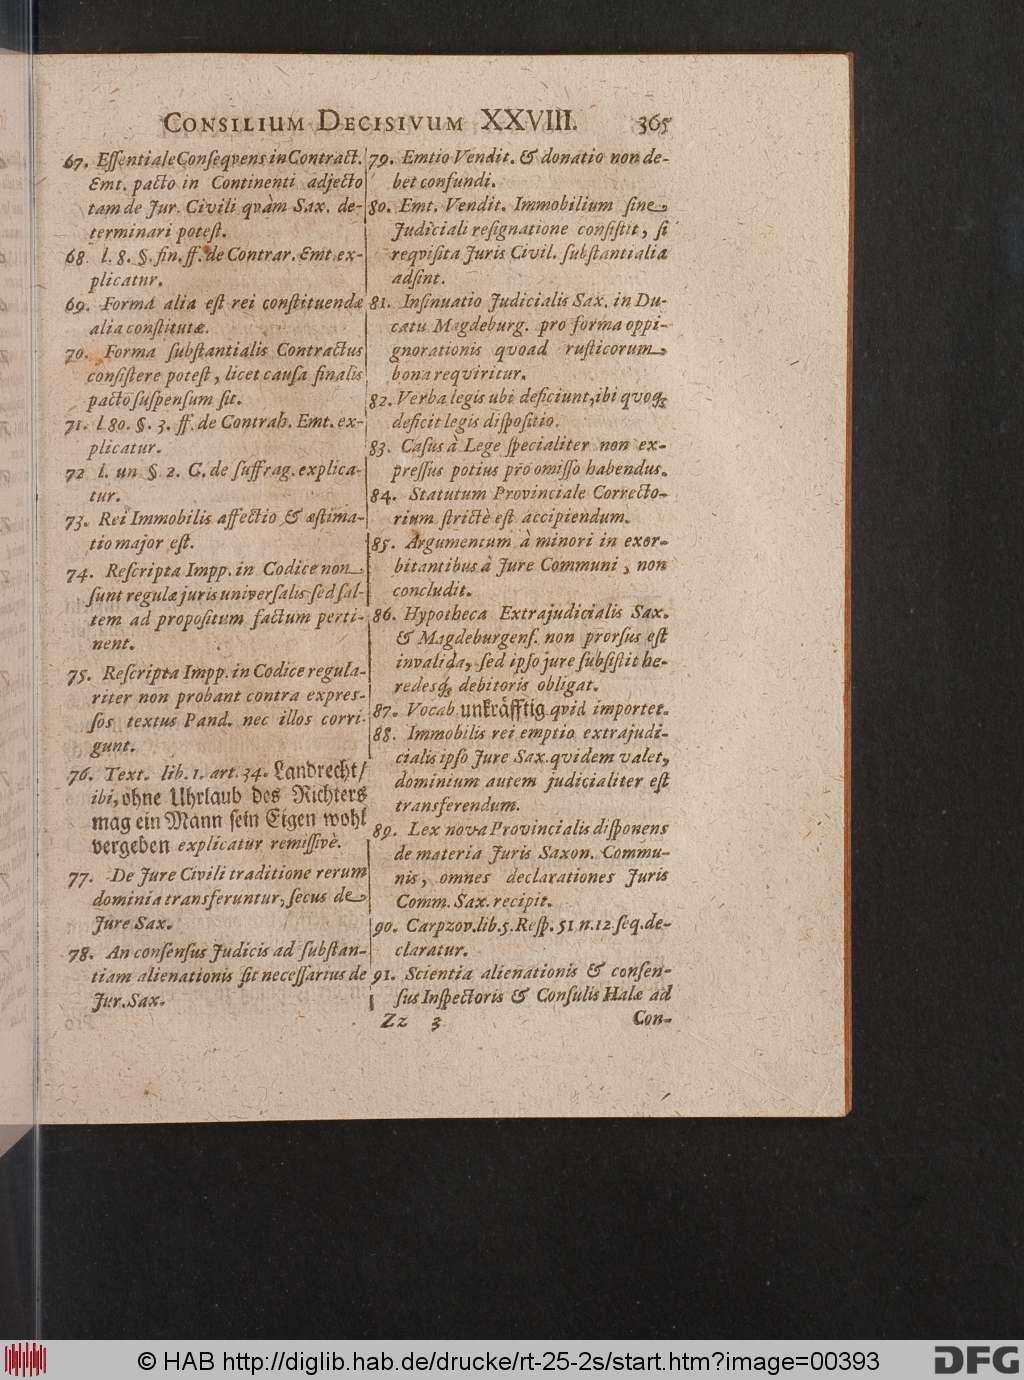 CONSILIUM DECISIVUM XXVIII. 365
67. Eſſentiale Conſeqvens in Contract.
Emt. pacto in Continenti adjecto
tam de Jur. Civili qvàm Sax. de-
terminari poteſt.
68. l. 8. §. fin. ff. de Contrar. Emt. ex-
plicatur.
69. Forma alia eſt rei conſtituendæ
alia conſtitutæ.
70. Forma ſubſtantialis Contractus
conſiſtere poteſt, licet cauſa finalis
pacto ſuſpenſum ſit.
71. l. 80. §. 3. ff. de Contrah. Emt. ex-
plicatur.
72 l. un §. 2. C. de ſuffrag. explica-
tur.
73. Rei Immobilis affectio & æſtima-
tio major eſt.
74. Reſcripta Impp. in Codice non
ſunt regulæ juris univerſalis ſed ſal-
tem ad propoſitum factum perti-
nent.
75. Reſcripta Impp. in Codice regula-
riter non probant contra expreſ-
ſos textus Pand. nec illos corri-
gunt.
76. Text. lib. 1. art. 34. Landrecht/
ibi, ohne Uhrlaub des Richters
mag ein Mann ſein Eigen wohl
vergeben explicatur remiſſivè.
77. De Jure Civili traditione rerum
dominia transferuntur, ſecus de
Jure Sax.
78. An conſenſus Judicis ad ſubſtan-
tiam alienationis ſit neceſſarius de
Jur. Sax.
79. Emtio Vendit. & donatio non de-
bet confundi.
80. Emt. Vendit. Immobilium ſine
Judiciali reſignatione conſiſtit, ſi
reqviſita Juris Civil. ſubſtantialia
adſint.
81. Inſinuatio Judicialis Sax. in Du-
catu Magdeburg. pro forma oppi-
gnorationis qvoad ruſticorum
bona reqviritur.
82. Verba legis ubi deficiunt, ibi qvoq;
deficit legis diſpoſitio.
83. Caſus à Lege ſpecialiter non ex-
preſſus potius pro omiſſo habendus.
84. Statutum Provinciale Correcto-
rium ſtrictè eſt accipiendum.
85. Argumentum à minori in exor-
bitantibus à Jure Communi, non
concludit.
86. Hypotheca Extrajudicialis Sax.
& Magdeburgenſ. non prorſus eſt
invalida, ſed ipſo jure ſubſiſtit he-
redesq; debitoris obligat.
87. Vocab. unkräfftig qvid importet.
88. Immobilis rei emptio extrajudi-
cialis ipſo Jure Sax. qvidem valet,
dominium autem judicialiter eſt
transferendum.
89. Lex nova Provincialis diſponens
de materia Juris Saxon. Commu-
nis, omnes declarationes Juris
Comm. Sax. recipit.
90. Carpzov. lib. 5. Reſp. 51 n. 12 ſeq. de-
claratur.
91. Scientia alienationis & conſen-
ſus Inſpectoris & Conſulis Halæ ad
Zz 3 Con-
© HAB http://diglib.hab.de/drucke/rt-25-2s/start.htm?image=00393
DFG